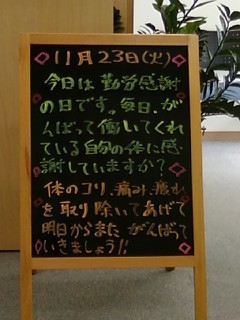 11月23日(火)
今日は勤労感謝
の日です。毎日、が
んばって働いてくれ
ている自分の体に感
謝していますか?
体のコリ、痛み、疲れ
を取り除いてあげて
明日からまた がんばって
いきましょう!!